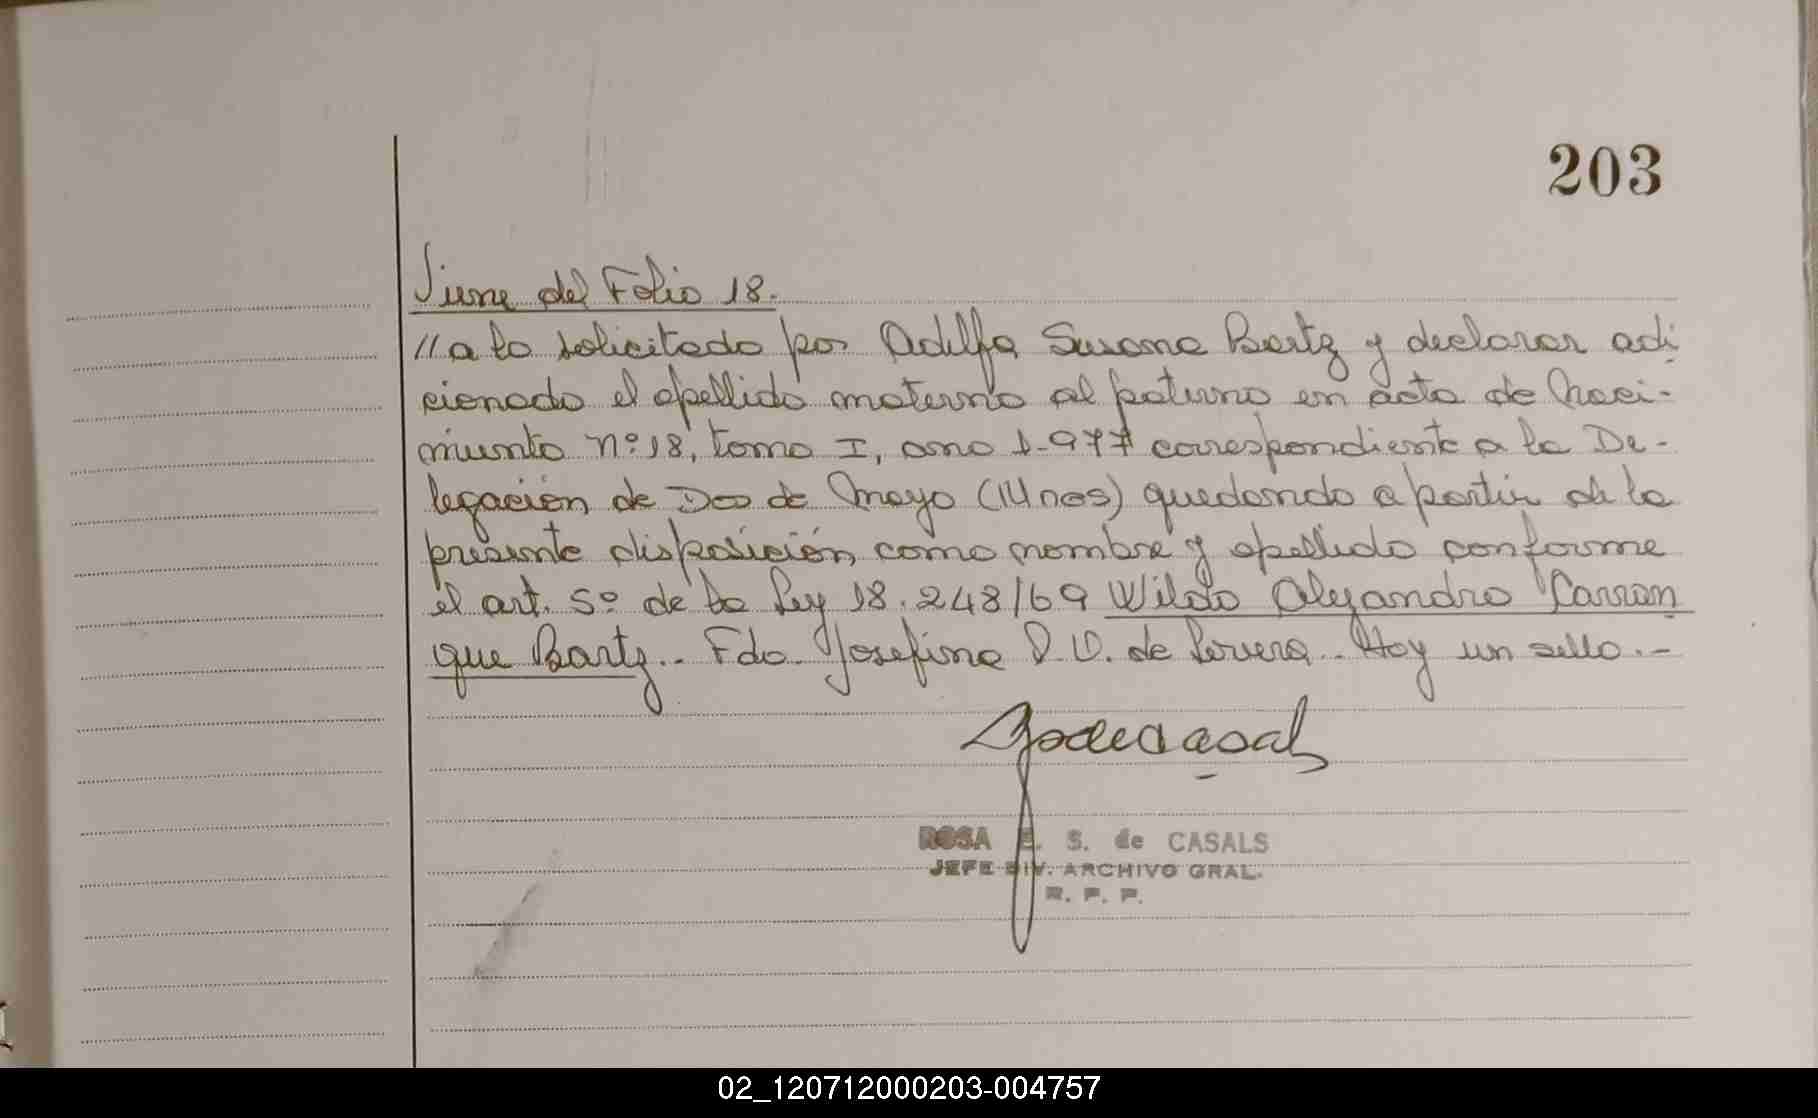 203
Viene del Folio 18.
//a lo solicitado por Adelfa Susana Bartz y declarar adi
cionado el apellido materno al paterno en acta de Naci-
miento nº 18, tomo I, ano 1.977 correspondiente a la De-
legación de Dos de Mayo (Mnes) quedando a partir de la
presente disposición, como nombre y apellido conforme
el art. 5º de la Ley 18.248/69 Wildo Alejandro Carran
que Bartz.. Fdo. Josefina D. V. de Rovera.. Hay un sello.-
ROSA E. S. de CASALS
JEFE DIV. ARCHIVO GRAL.
R. P. P.
02_120712000203-004757